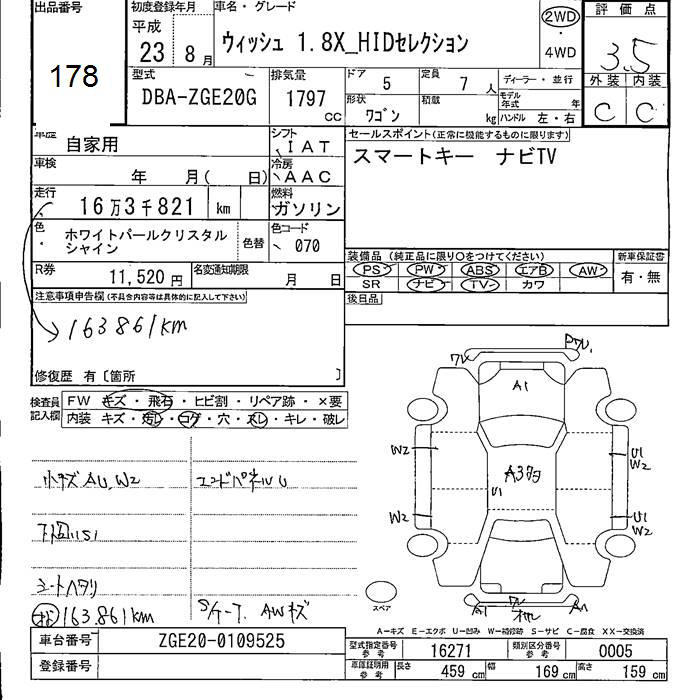 出品番号
178
初度登録年月
平成
23 8月
車名・グレード
ウィッシュ 1.8X_HIDセレクション
2WD
・
4WD
評価点
3.5
外装 内装
C C
型式
DBA-ZGE20G
排気量
1797
cc
ドア
5
定員
7 人
形状
ワゴン
積載
kg
ディーラー・並行
モデル年式 年
ハンドル 左・右
車歴
自家用
シフト
IAT
車検
年 月( 日)
冷房
AAC
走行
16万3千821 km
燃料
ガソリン
色
ホワイトパールクリスタル
シャイン
色替
色コード
070
R券
11,520 円
名変通知期限
月 日
セールスポイント(正常に機能するものに限ります)
スマートキー ナビTV
装備品 (純正品に限り○をつけてください)
PS PW ABS エアB AW
SR ナビ TV カワ
新車保証書
有・無
後日品
注意事項申告欄(不具合内容等は具体的に記入して下さい)
163861km
修復歴 有〔箇所 〕
検査員
記入欄
FW キズ・飛石・ヒビ割・リペア跡・×要
内装 キズ・汚レ・コゲ・穴・スレ・キレ・破レ
小キズ AU, W2
エンドパネルU
下回りS1
シートヘタリ
163861km
S/ケース AWキズ
A1
W2
W2
A3
U1
U1
W2
U1
W2
A1
スペア
A-キズ E-エクボ U-凹み W-補修跡 S-サビ C-腐食 XX-交換済
車台番号
ZGE20-0109525
登録番号
型式指定番号
参考
16271
類別区分番号
参考
0005
車庫証明用
参考
長さ
459 cm
幅
169 cm
高さ
159 cm